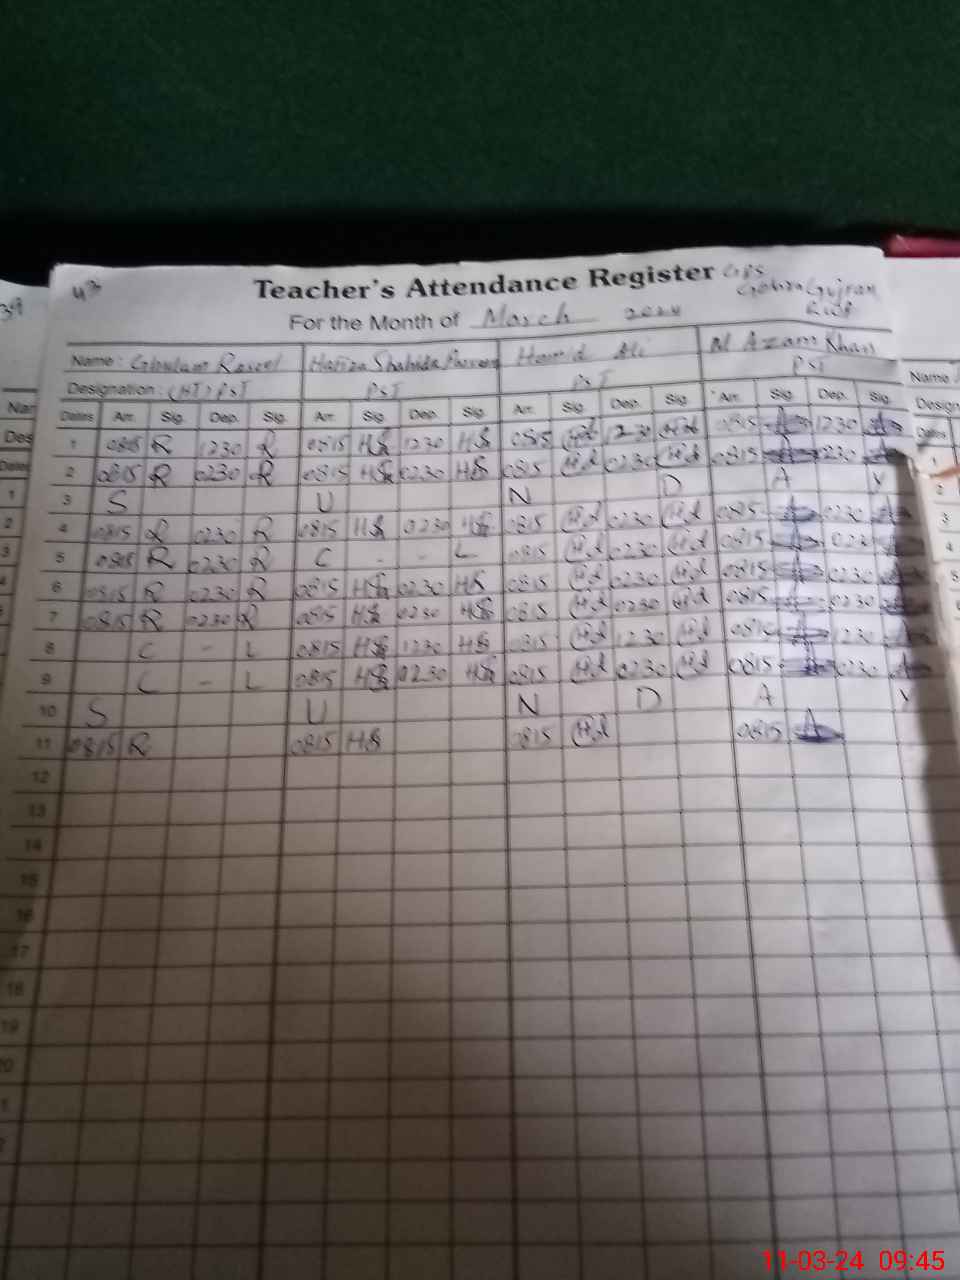 43 Teacher's Attendance Register GPS
39 For the Month of March 2024
Name: Ghulam Rasool Hafiza Shahida Parveen Hamid Ali M Azam Khan Name
Designation: (HT) PST PST PST PST Design
Dates Arr. Sig. Dep. Sig. Arr. Sig. Dep. Sig. Arr. Sig. Dep. Sig. Arr. Sig. Dep. Sig. Dates
1 0815 R 1230 R 0815 HS 1230 HS 0815 Hd 1230 Hd 0815 1230
2 0815 R 0230 R 0815 HS 0230 HS 0815 Hd 0230 Hd 0815 0230
3 S U N D A Y
4 0815 R 0230 R 0815 HS 0230 HS 0815 Hd 0230 Hd 0815 0230
5 0815 R 0230 R C - - L 0815 Hd 0230 Hd 0815 023
6 0815 R 0230 R 0815 HS 0230 HS 0815 Hd 0230 Hd 0815 0230
7 0815 R 0230 R 0815 HS 0230 HS 0815 Hd 0230 Hd 0815 0230
8 C - L 0815 HS 1230 HS 0815 Hd 1230 Hd 0815 1230
9 C - L 0815 HS 0230 HS 0815 Hd 0230 Hd 0815 0230
10 S U N D A Y
11 0815 R 0815 HS 0815 Hd 0815
12
13
14
15
16
17
18
19
20
11-03-24 09:45